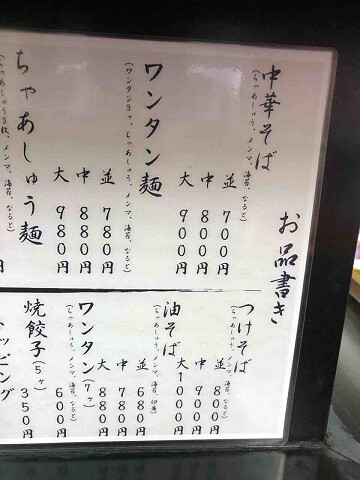 お品書き
中華そば
(ちゃあしゅう、メンマ、海苔、なると)
並 700円
中 800円
大 900円
ワンタン麺
(ワンタン3ヶ、ちゃあしゅう、メンマ、海苔、なると)
並 780円
中 880円
大 980円
ちゃあしゅう麺
つけそば
(ちゃあしゅう、メンマ、海苔、なると)
並 800円
中 900円
大 1000円
油そば
並 680円
中 780円
大 880円
ワンタン(7ヶ)
(ちゃあしゅう、メンマ、海苔、なると)
600円
焼餃子(5ヶ)
350円
ッピング